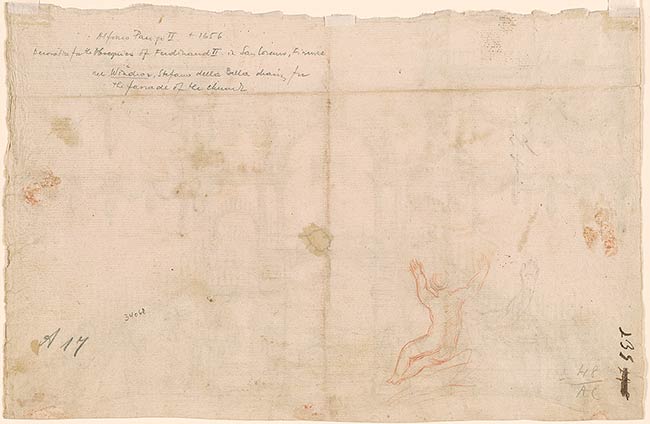 Alfonso Parigi II + 1656
Decoration for the Obsequies of Ferdinand II in San Lorenzo, Firenze
see Windsor, Stefano della Bella drawing for
the facade of the church
34068
A 17
235
48
A C